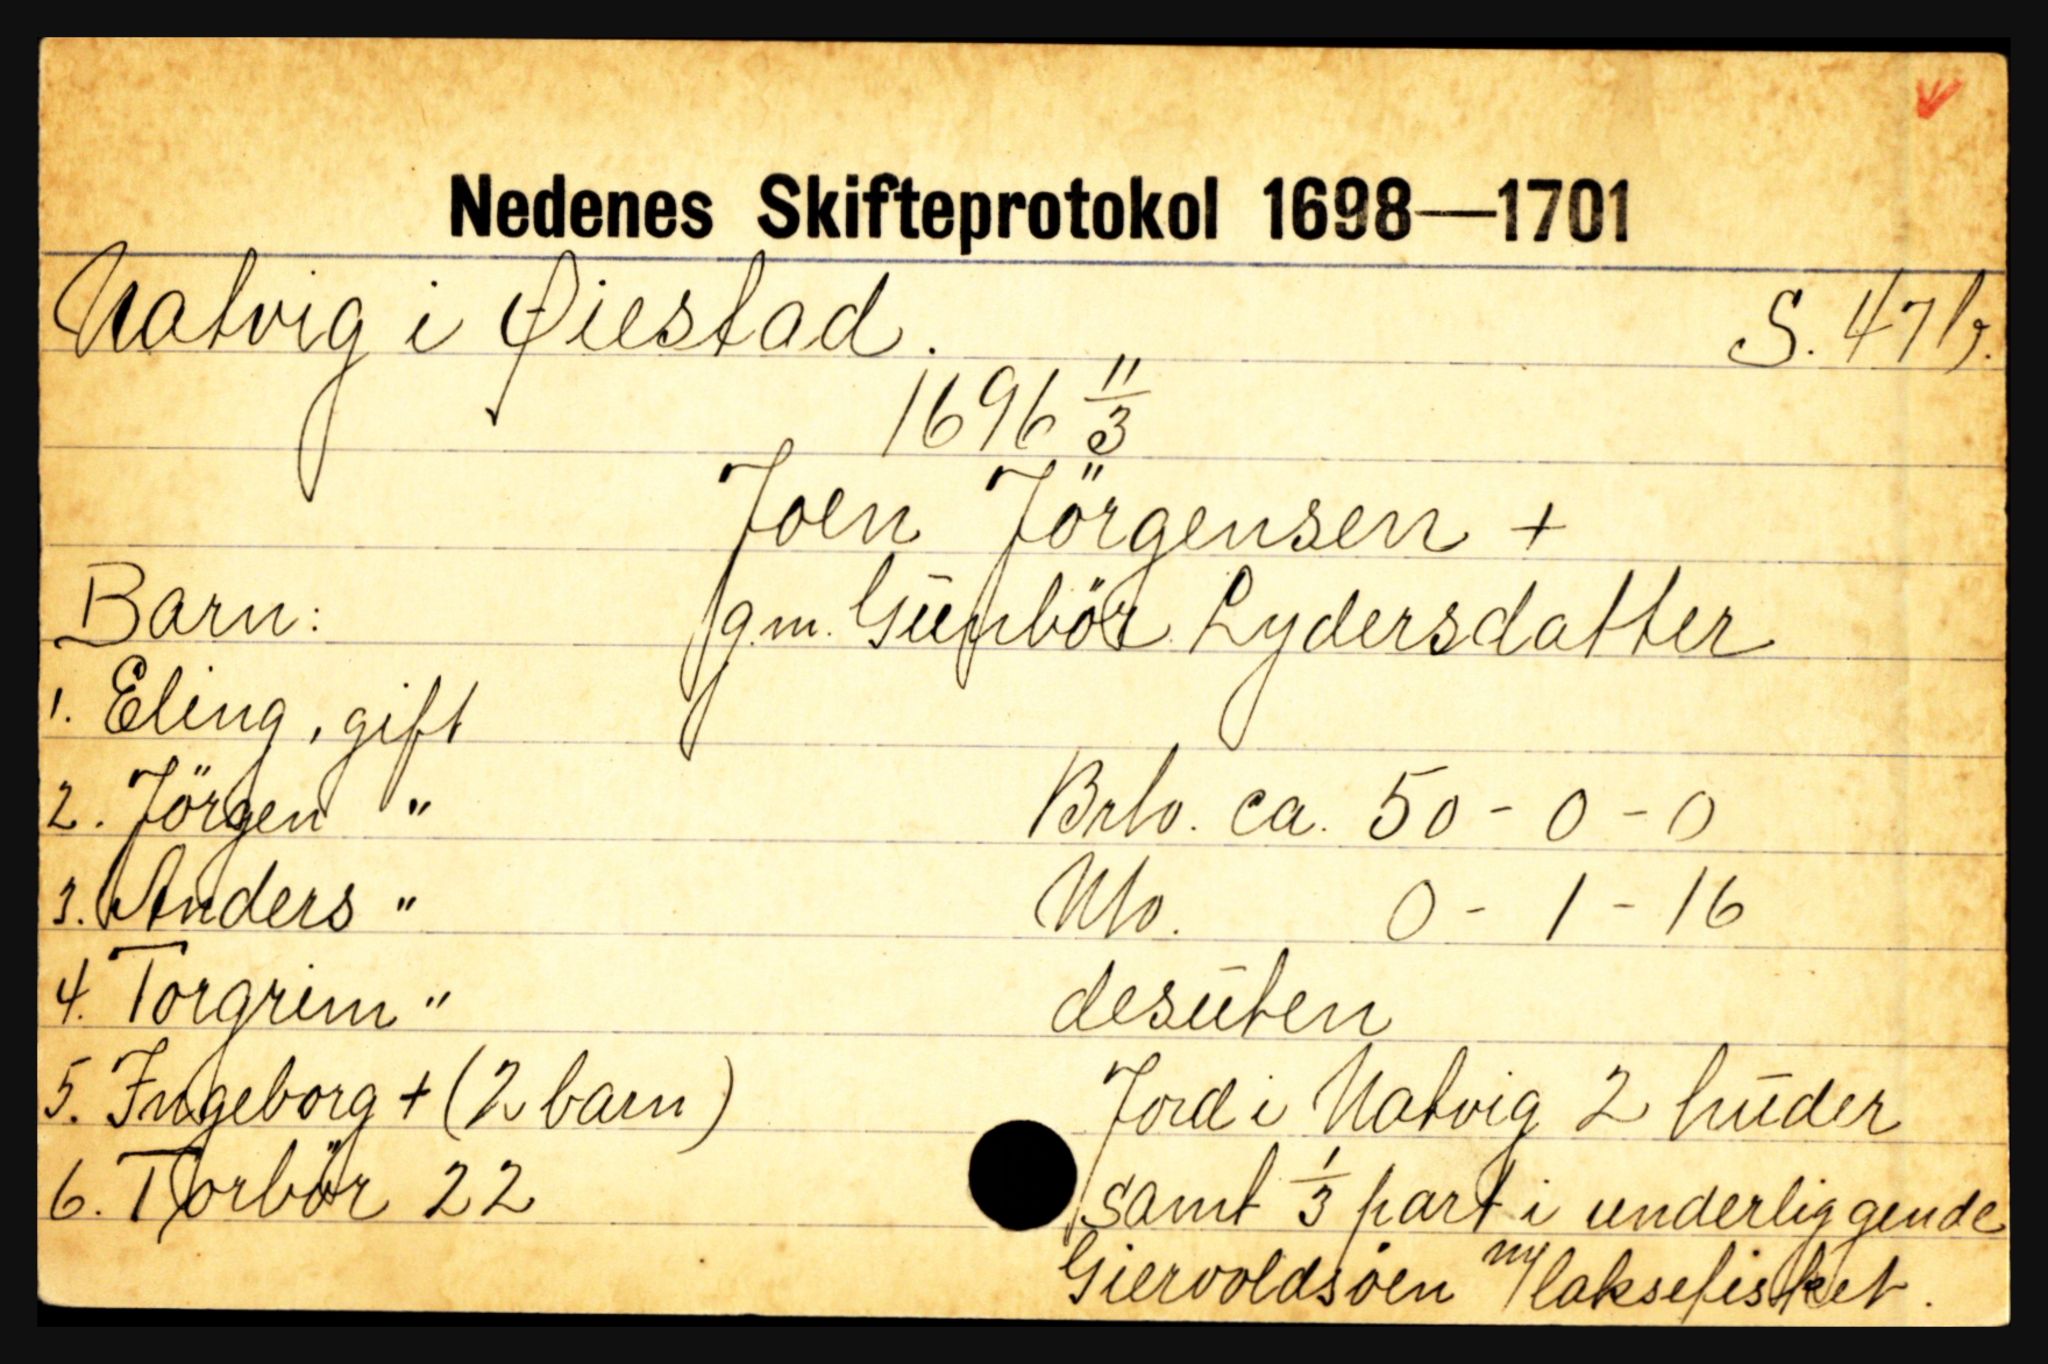 Nedenes Skifteprotokol 1698—1701
Natvig i Øiestad. S. 47b.
1696 11/3
Joen Jörgensen +
Barn: g.m. Gunbör Lydersdatter
1. Eling, gift
2. Jörgen " Brto. ca. 50 - 0 - 0
3. Anders " Nto. 0 - 1 - 16
4. Torgrim " desuten
5. Ingeborg + (2 barn) Jord i Natvig 2 huder
6. Torbör 22 samt 1/3 part i underliggende
Giervoldsöen m/laksefisket.